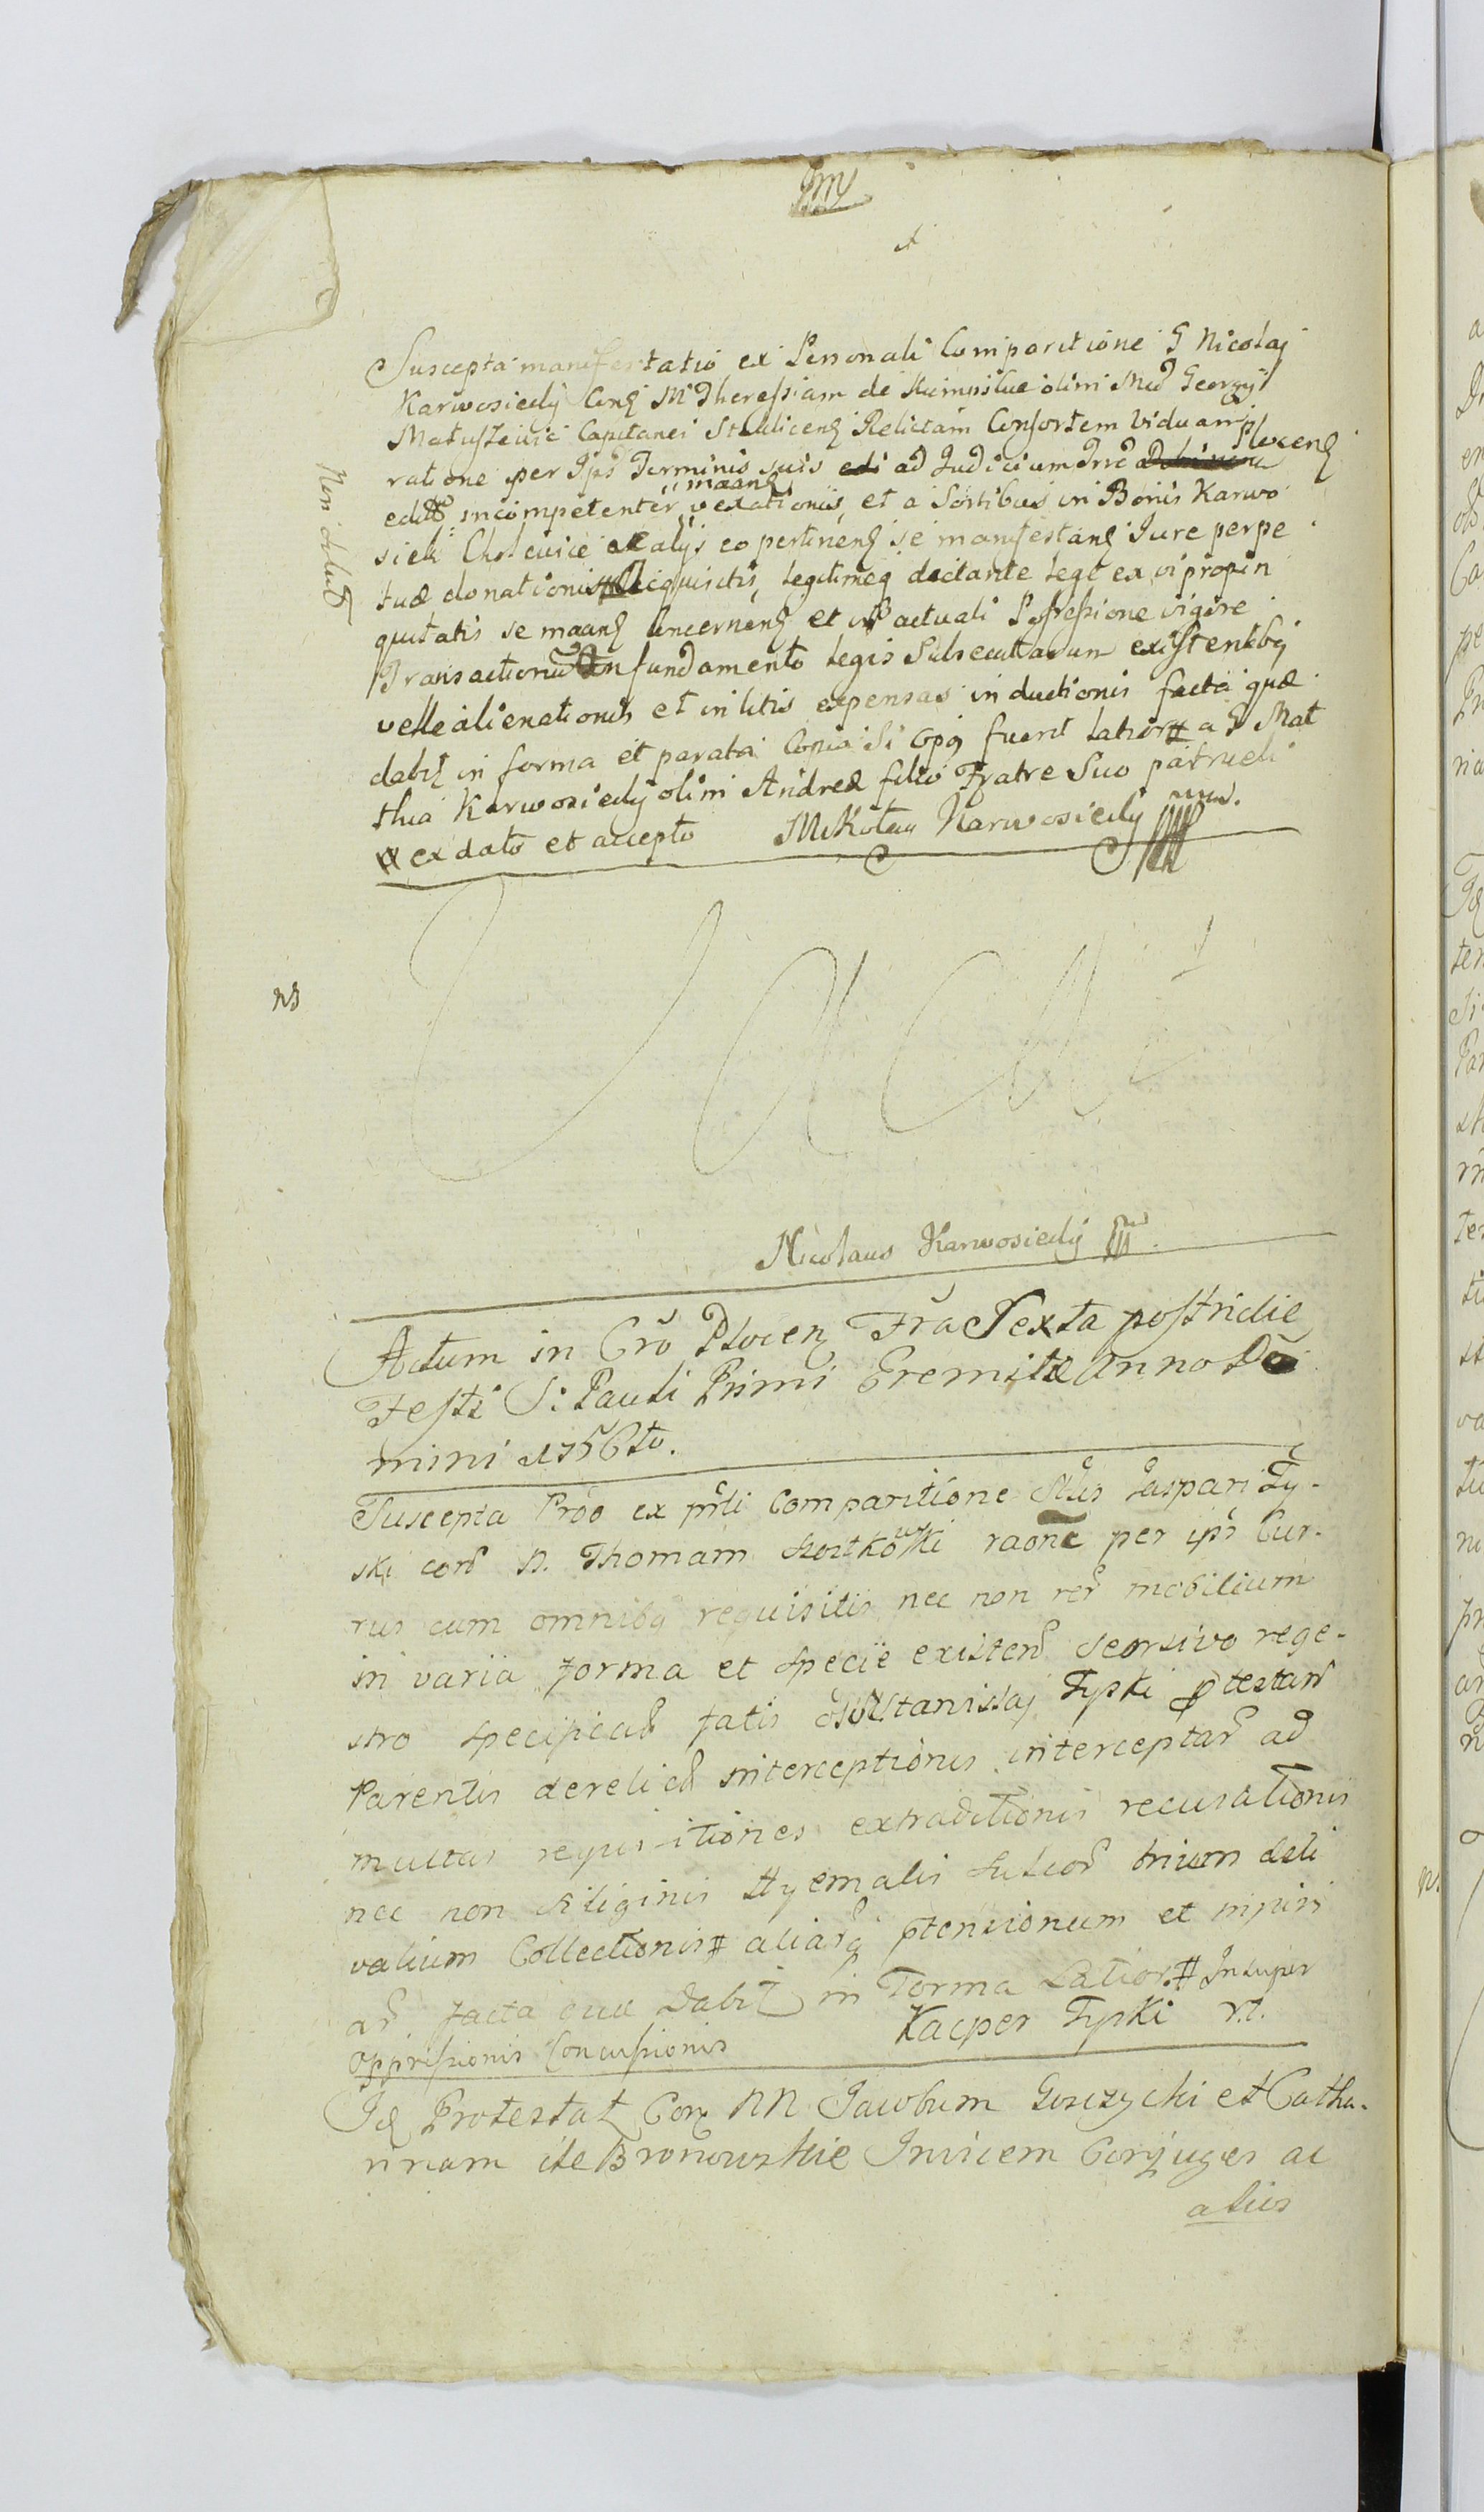 Suscepta manifestatio ex Personali Comparitione G Nicolaj
Karwosiecky Conq M Theressiam de olim Mcd Georgij
Matuszewic Capitanei Relictam Consortem Viduam
ratione per Ips Terminis suis edi ad Judicium Trre Plocenq
edit incompetenter maanq vexationis, et a Sortibus in Bonis Karwo
siek Cholewice alijs eo pertinenq se manifestanq Jure perpe
tuæ donationis acquisitis, legitimeq dictante lege ex vi propin
quitatis se maanq Concernenq et in actuali Possessione vigore
Transactionu in fundamento legis Subsecutarum existentibq
velle alienationis et in litis expensas inductionis facta quæ
dabit in forma et parata Copia Si opq fuerit latior # a G Mat
thia Karwosiecky olim Andreæ filio Fratre Suo patrueli
# ex dato et accepto Mikołay Karwosiecky mp.
Non edit
NB
Vacat
Nicolaus Karwosiecky mp.
Actum in Cro Plocenq Fra Sexta postridie
Festi S: Pauli Primi Eremitæ Anno Do
mini 1756to.
Suscepta Proo ex prli Comparitione Nlis Caspari Ty-
ski con N. Thomam Kostkowski raone per ips Cur-
rus cum omnibq requisitis nec non rer mobilium
in varia forma et specie existen seorsivo rege-
stro specificat fatis olim Stanislaj Tyski ptestan
Parentis derelict interceptionis interceptar ad
multas requisitiones extraditionis recusationis
nec non siliginis Hyemalis Sulcor trium deli
valium Collectionis # aliarq ptensionum et injuri
ar. facta quæ dabit in Forma Latior # Insuper
oppressionis Concussionis Kacper Tyski r.t.
Id Protestat Con NN Jacobum Goszycki et Catha-
rinam de Bronowskie Invicem Conjuges ac
alios